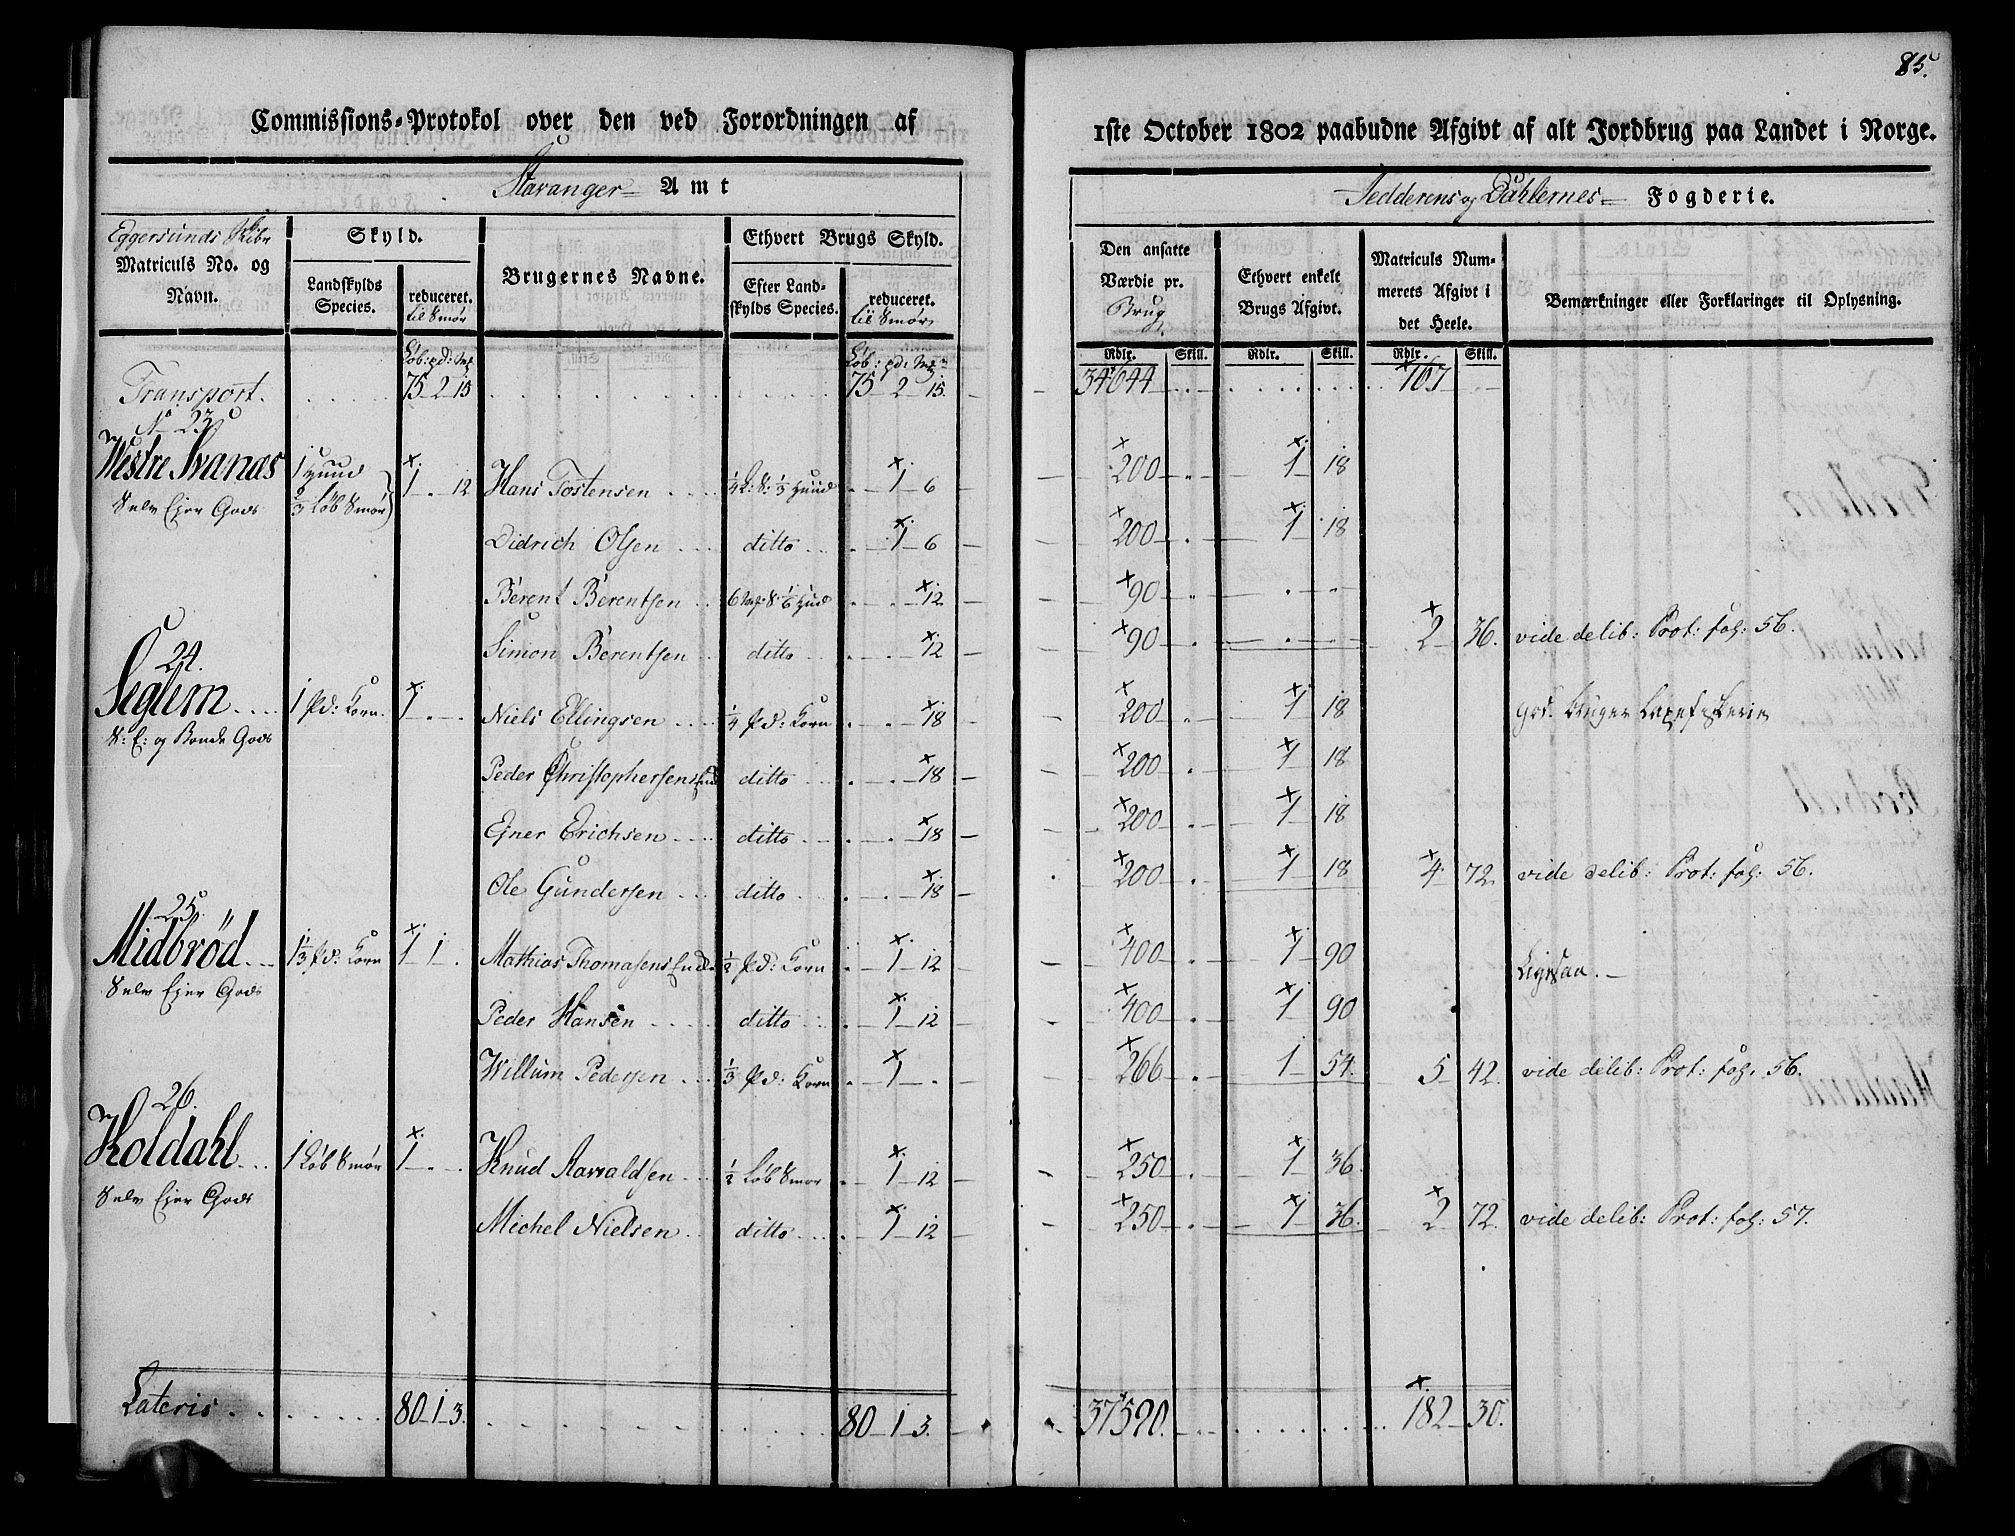 85.
Commissions-Protokol over den ved Forordningen af 1ste October 1802 paabudne Afgivt af alt Jordbrug paa Landet i Norge.
Stavanger Amt
Jedderens og Dahlernes Fogderie.
Eggersunds Skibr
Matriculs No. og Navn.
Skyld.
Landskylds Species.
reduceret. til Smør
Brugernes Navne.
Ethvert Brugs Skyld.
Efter Landskylds Species.
reduceret. til Smør
Den ansatte Værdie pr. Brug
Ethvert enkelt Brugs Afgivt.
Matriculs Nummerets Afgivt i det Heele.
Bemærkninger eller Forklaringer til Oplysning.
Løb: pd: Mk Løb: pd: Mk Rdlr. Skill. Rdlr. Skill. Rdlr. Skill.
Transport. 75 2 15 75 2 15 34644 167
No 23
Westre Svanæs 1 Huud 2/3 Løb Smør 1 12 Hans Tostensen 1/4 L: S: 1/3 Huud 1 6 200 1 18
Selv Ejer Gods
Didrich Olsen ditto 1 6 200 1 18
Berent Berentsen 6 Mk S: 1/6 Huud 12 90
Simon Berentsen ditto 12 90 2 36. vide delib: Prot: fol: 56.
24.
Seglem 1 Pd: Korn. 1 Niels Ellingsen 1/4 Pd: Korn 18 200 1 18 Laxefiskerie
S: E: og Bonde Gods
Peder Christophersens Enke ditto 18 200 1 18
Ejner Erichsen ditto 18 200 1 18
Ole Gundersen ditto 18 200 1 18 4 72. vide delib: Prot: fol: 56.
25.
Midbrød 1 1/3 Pd: Korn 1 1 Mathias Thomasens Enke 1/2 Pd: Korn 1 12 400 1 90
Selv Ejer Gods
Peder Hansen ditto 1 12 400 1 90
Willum Pedersen 1/3 Pd: Korn 1 266 1 54 5 42. vide delib: Prot: fol. 56.
26.
Koldahl 1 Løb Smør 1 Knud Aavaldsen 1/2 Løb Smør 1 12 250 1 36.
Selv Ejer Gods
Michel Nielsen ditto 1 12 250 1 36. 2 72. vide delib: Prot: fol: 57.
Lateris 80 1 3. 80 1 3. 37590. 182 30.